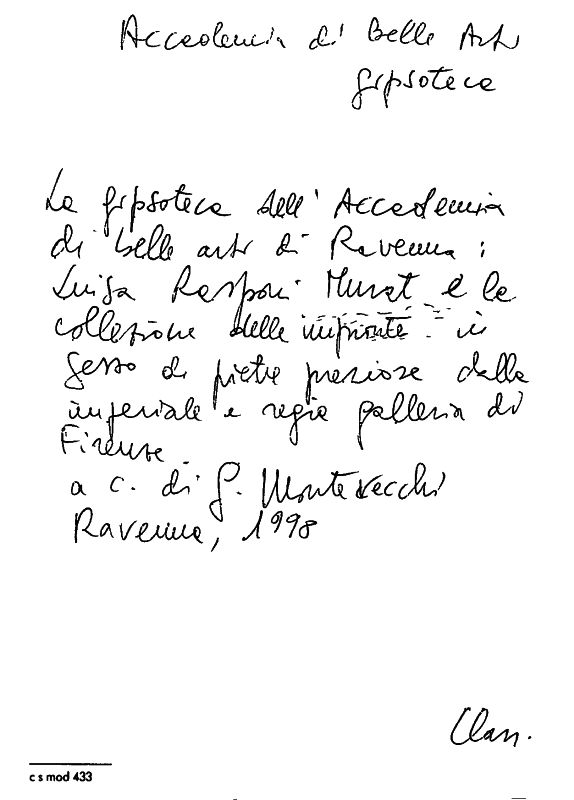 Accademia di Belle Arti
gipsoteca
La gipsoteca dell'Accademia
di belle arti di Ravenna:
Luisa Rasponi Murat e la
collezione delle impronte in
gesso di pietre preziose dalla
imperiale e regia galleria di
Firenze
a c. di G. Montevecchi
Ravenna, 1998
Class.
c s mod 433